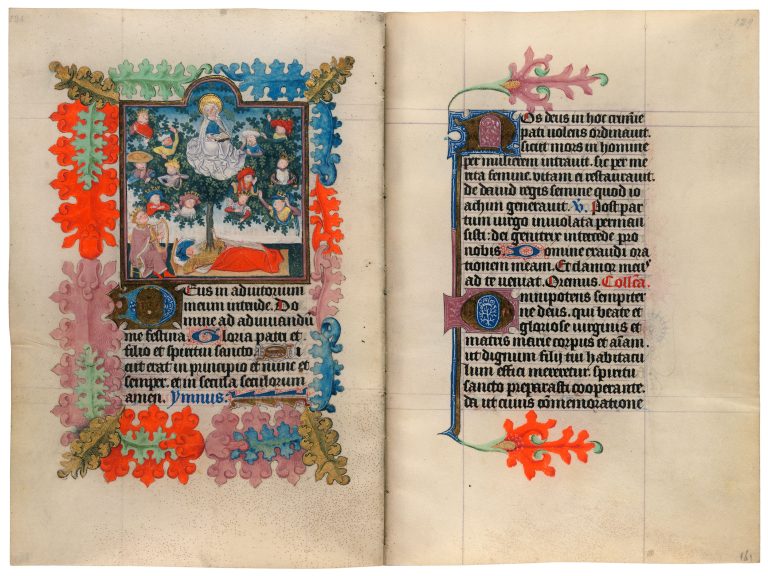 Deus in adiutorium
meum intende. Do
mine ad adiuuandū
me festina. Gloria patri et
filio et spiritui sancto. Si
cut erat in principio et nunc et
semper. et in secula seculorum
amen. Ymnus.
129
os deus in hoc
pati uolens ordinauit.
sicut mors in homine
per mulierem intrauit. sic per
semine. uitam et restaurauit.
de dauid regis semine quod io
achim generauit. V. Post par
tum uirgo inuiolata perman
sisti: dei genitrix intercede pro
nobis. Domine exaudi ora
tionem meam. Et clamor meus
ad te ueniat. Oremus. Collecta.
Omnipotens sempiter
ne deus. qui beate et
gloriose uirginis et
matris marie corpus et aīam.
ut dignum filij tui habitacu
lum effici mereretur. spiritu
sancto preparasti cooperante.
da ut cuius cōmemoratione